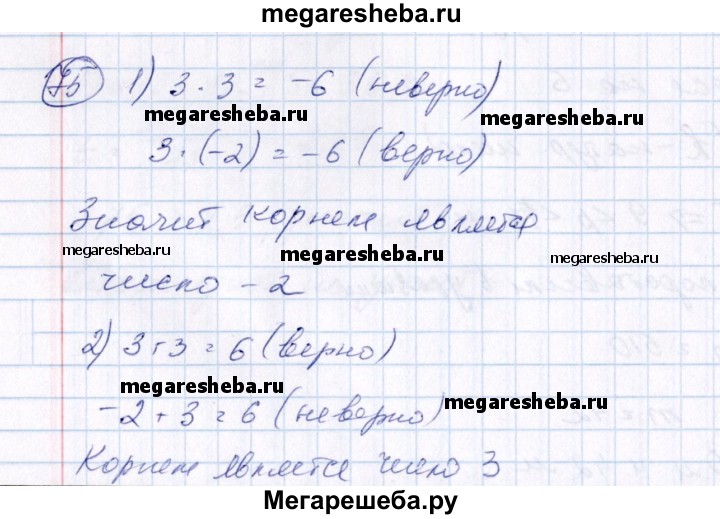 megaresheba.ru
75 1) 3 · 3 = -6 (неверно)
megaresheba.ru megaresheba.ru
3 · (-2) = -6 (верно)
Значит корнем является
megaresheba.ru megaresheba.ru
число -2
2) 3 + 3 = 6 (верно)
megaresheba.ru megaresheba.ru
-2 + 3 = 6 (неверно)
Корнем является число 3
Мегарешеба.ру